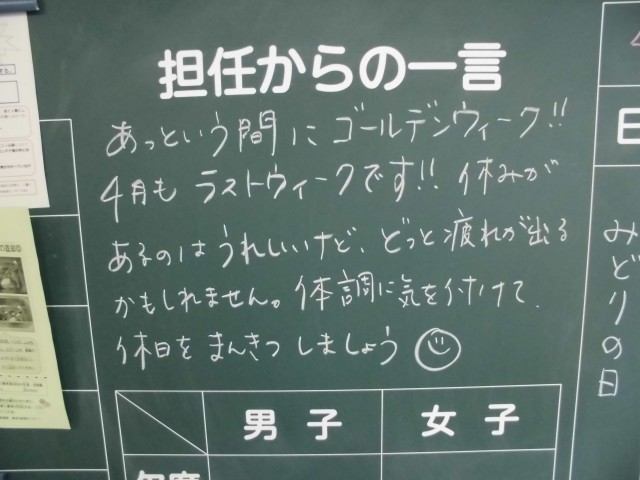 担任からの一言
あっという間にゴールデンウィーク!!
4月もラストウィークです!! 休みが
あるのはうれしいけど、どっと疲れが出る
かもしれません。体調に気を付けて、
休日をまんきつしましょう
男子 女子
欠席
日
みどりの日